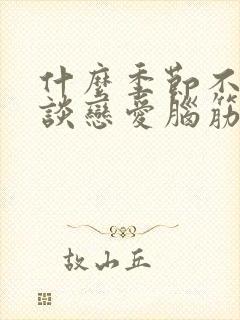 什麼季節不
談戀愛腦筋
故山丘